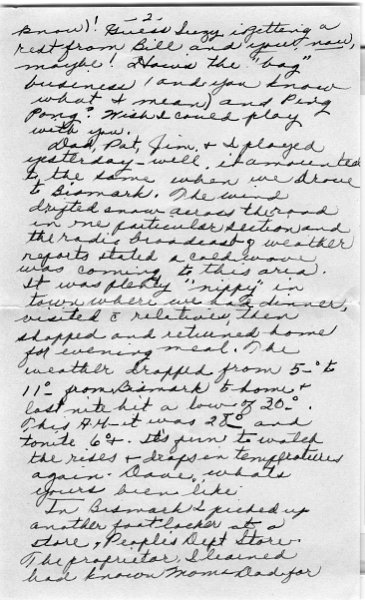 -2-
know)! Guess Suzy is getting a
rest from Bill and you, now,
maybe! How's the "bag"
business (and you know
what I mean) and Ping
Pong? Wish I could play
with you.
Dad, Pat, Jim, & I played
yesterday - well, it amounted
to the same when we drove
to Bismark. The wind
drifted snow across the road
in one particular section and
the radio broadcast & weather
reports stated a cold wave
was coming to this area.
It was plenty "nippy" in
town where we had dinner,
visited & relatives, then
shopped and returned home
for evening meal. The
weather dropped from 5-° to
11°- from Bismark to home &
last nite hit a low of 20-°.
This A.M. it was 28° and
tonite 6°+. It's fun to watch
the rises & drops in temperatures
again. Dave, what's
yours been like
In Bismark I picked up
another foot locker at a
store, People's Dept Store.
The proprietor, I learned
had known Mom & Dad for